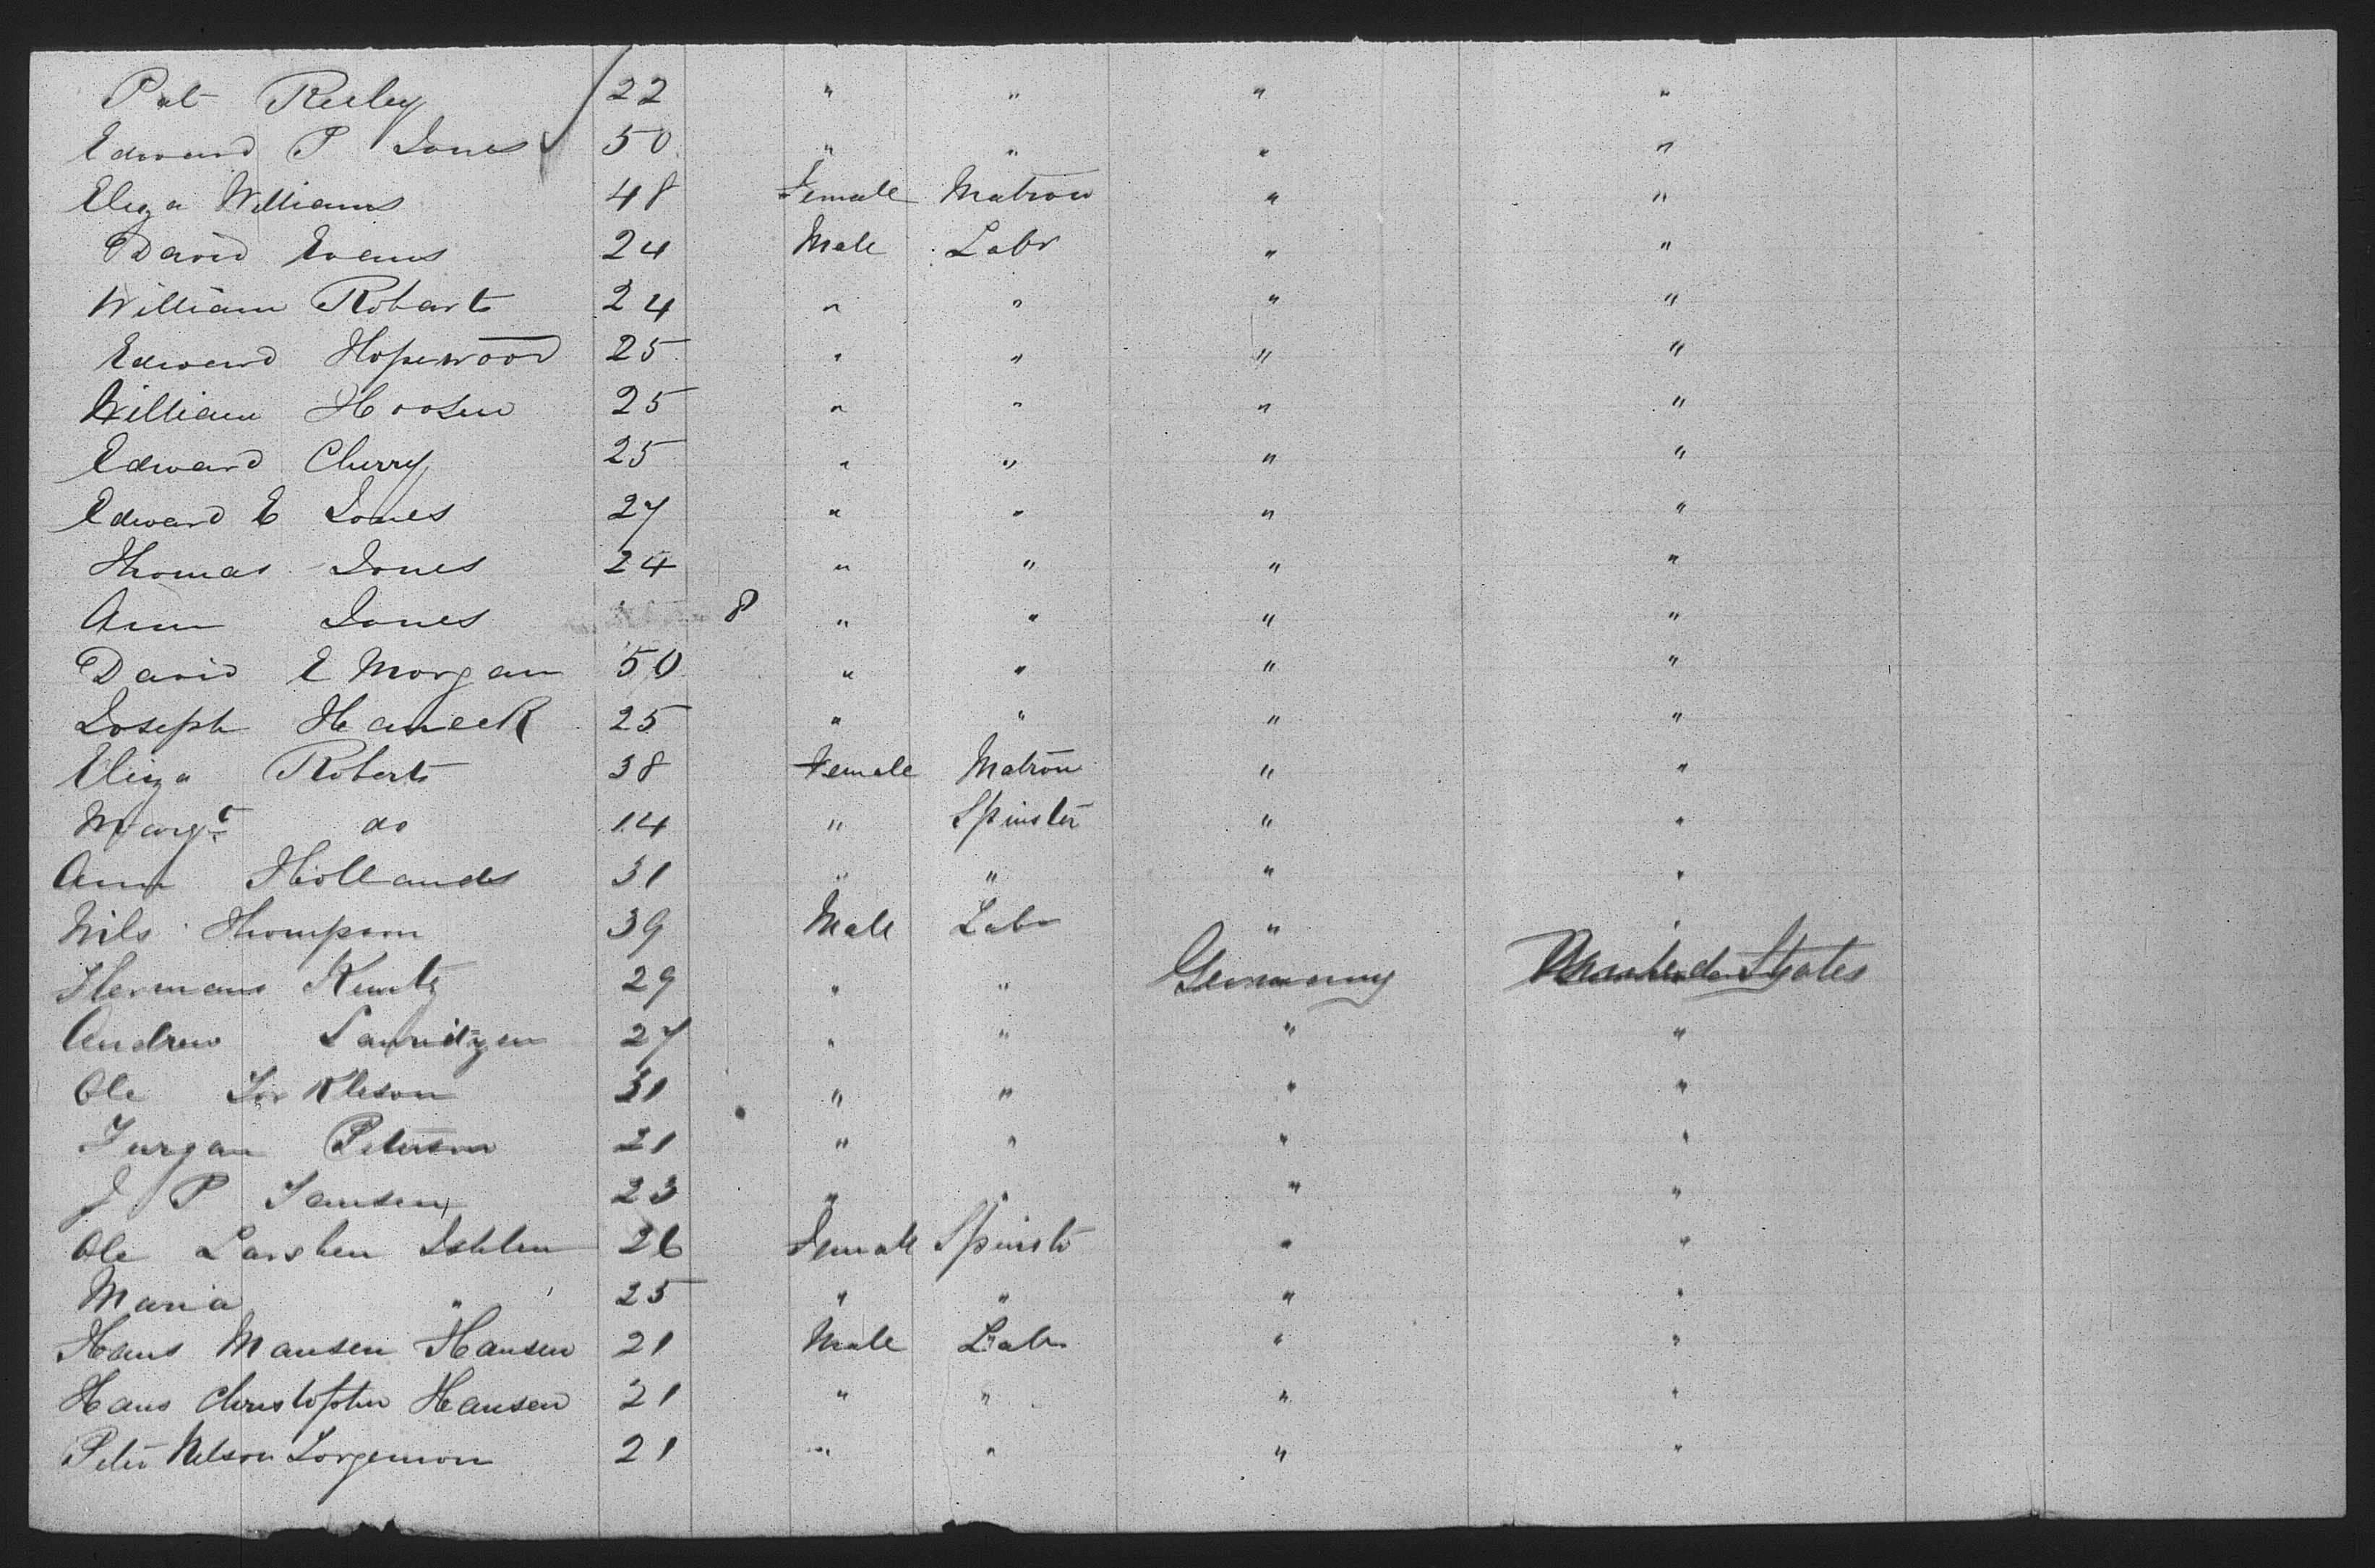 Pat Reiley 22 " " " "
Edward P Jones 50 " " " "
Eliza Williams 48 Female Matron " "
David Evans 24 Male Labr " "
William Robarts 24 " " " "
Edward Hopewood 25 " " " "
William Hoosen 25 " " " "
Edward Cherry 25 " " " "
Edward E Jones 27 " " " "
Thomas Jones 24 " " " "
Ann Jones 8 " " " "
David E Morgan 50 " " " "
Joseph Haneck 25 " " " "
Eliza Roberts 38 Female Matron " "
Margt do 14 " Spinster " "
Ann Hollands 31 " " " "
Nils Thompson 39 Male Labr " "
Hermann Kuntz 29 " " Germany States
Andrew Lauridzen 27 " " " "
Ole Torkleson 31 " " " "
Jurgan Peterson 21 " " " "
J P Jansen 23 " " " "
Ole Larshen 26 Female Spinstr " "
Maria " 25 " " " "
Hans Mansen Hansen 21 Male Labr " "
Hans Christopher Hansen 21 " " " "
Peter Nelson Jorgenson 21 " " " "